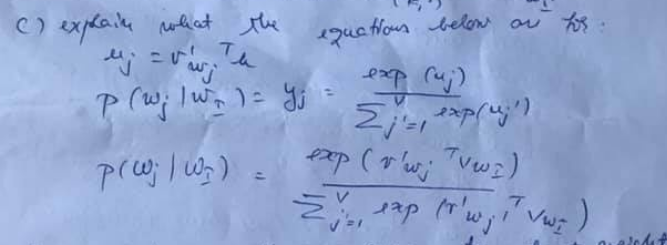 c) explain what the equations below are for:
u_j = v'_{w_j}^T h
p(w_j | w_I) = y_j = exp(u_j) / Σ_{j'=1}^V exp(u_j')
p(w_j | w_I) = exp(v'_{w_j}^T v_{w_I}) / Σ_{j'=1}^V exp(v'_{w_j'}^T v_{w_I})